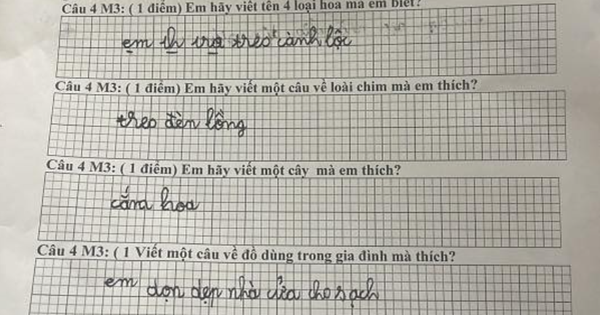 Câu 4 M3: ( 1 điểm) Em hãy viết tên 4 loại hoa mà em biết?
em th tra treo cành lội
Câu 4 M3: ( 1 điểm) Em hãy viết một câu về loài chim mà em thích?
treo đèn lồng
Câu 4 M3: ( 1 điểm) Em hãy viết một cây mà em thích?
cắm hoa
Câu 4 M3: ( 1 Viết một câu về đồ dùng trong gia đình mà thích?
em dọn dẹp nhà cửa cho sạch